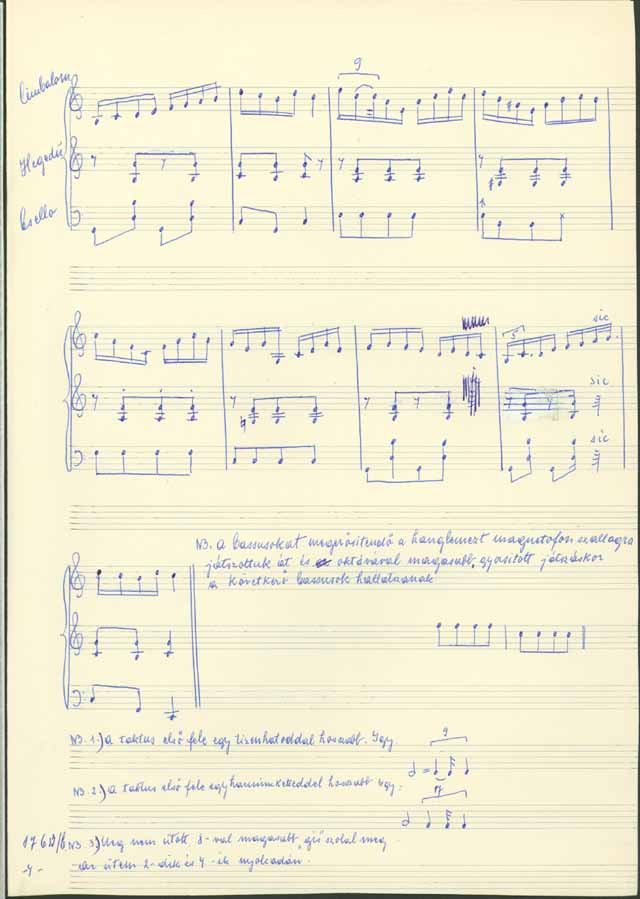 Cimbalom
9
Hegedű
Cselló
sic
5
sic
sic
NB. A bassusokat megerősítendő a hanglemezt magnetofon szallagra
játszottuk át és oktávával magasabb, gyorsított játszáskor
a következő bassusok hallatszanak
NB. 1.) A taktus első fele egy tizenhatoddal hosszabb. Így
9
NB. 2.) A taktus első fele egy harmincketteddel hosszabb így:
17
NB. 3.) Meg nem ütött, 8-val magasabb gis szólal meg
az ütem 2-dik és 4-ik nyolcadán.
-4-